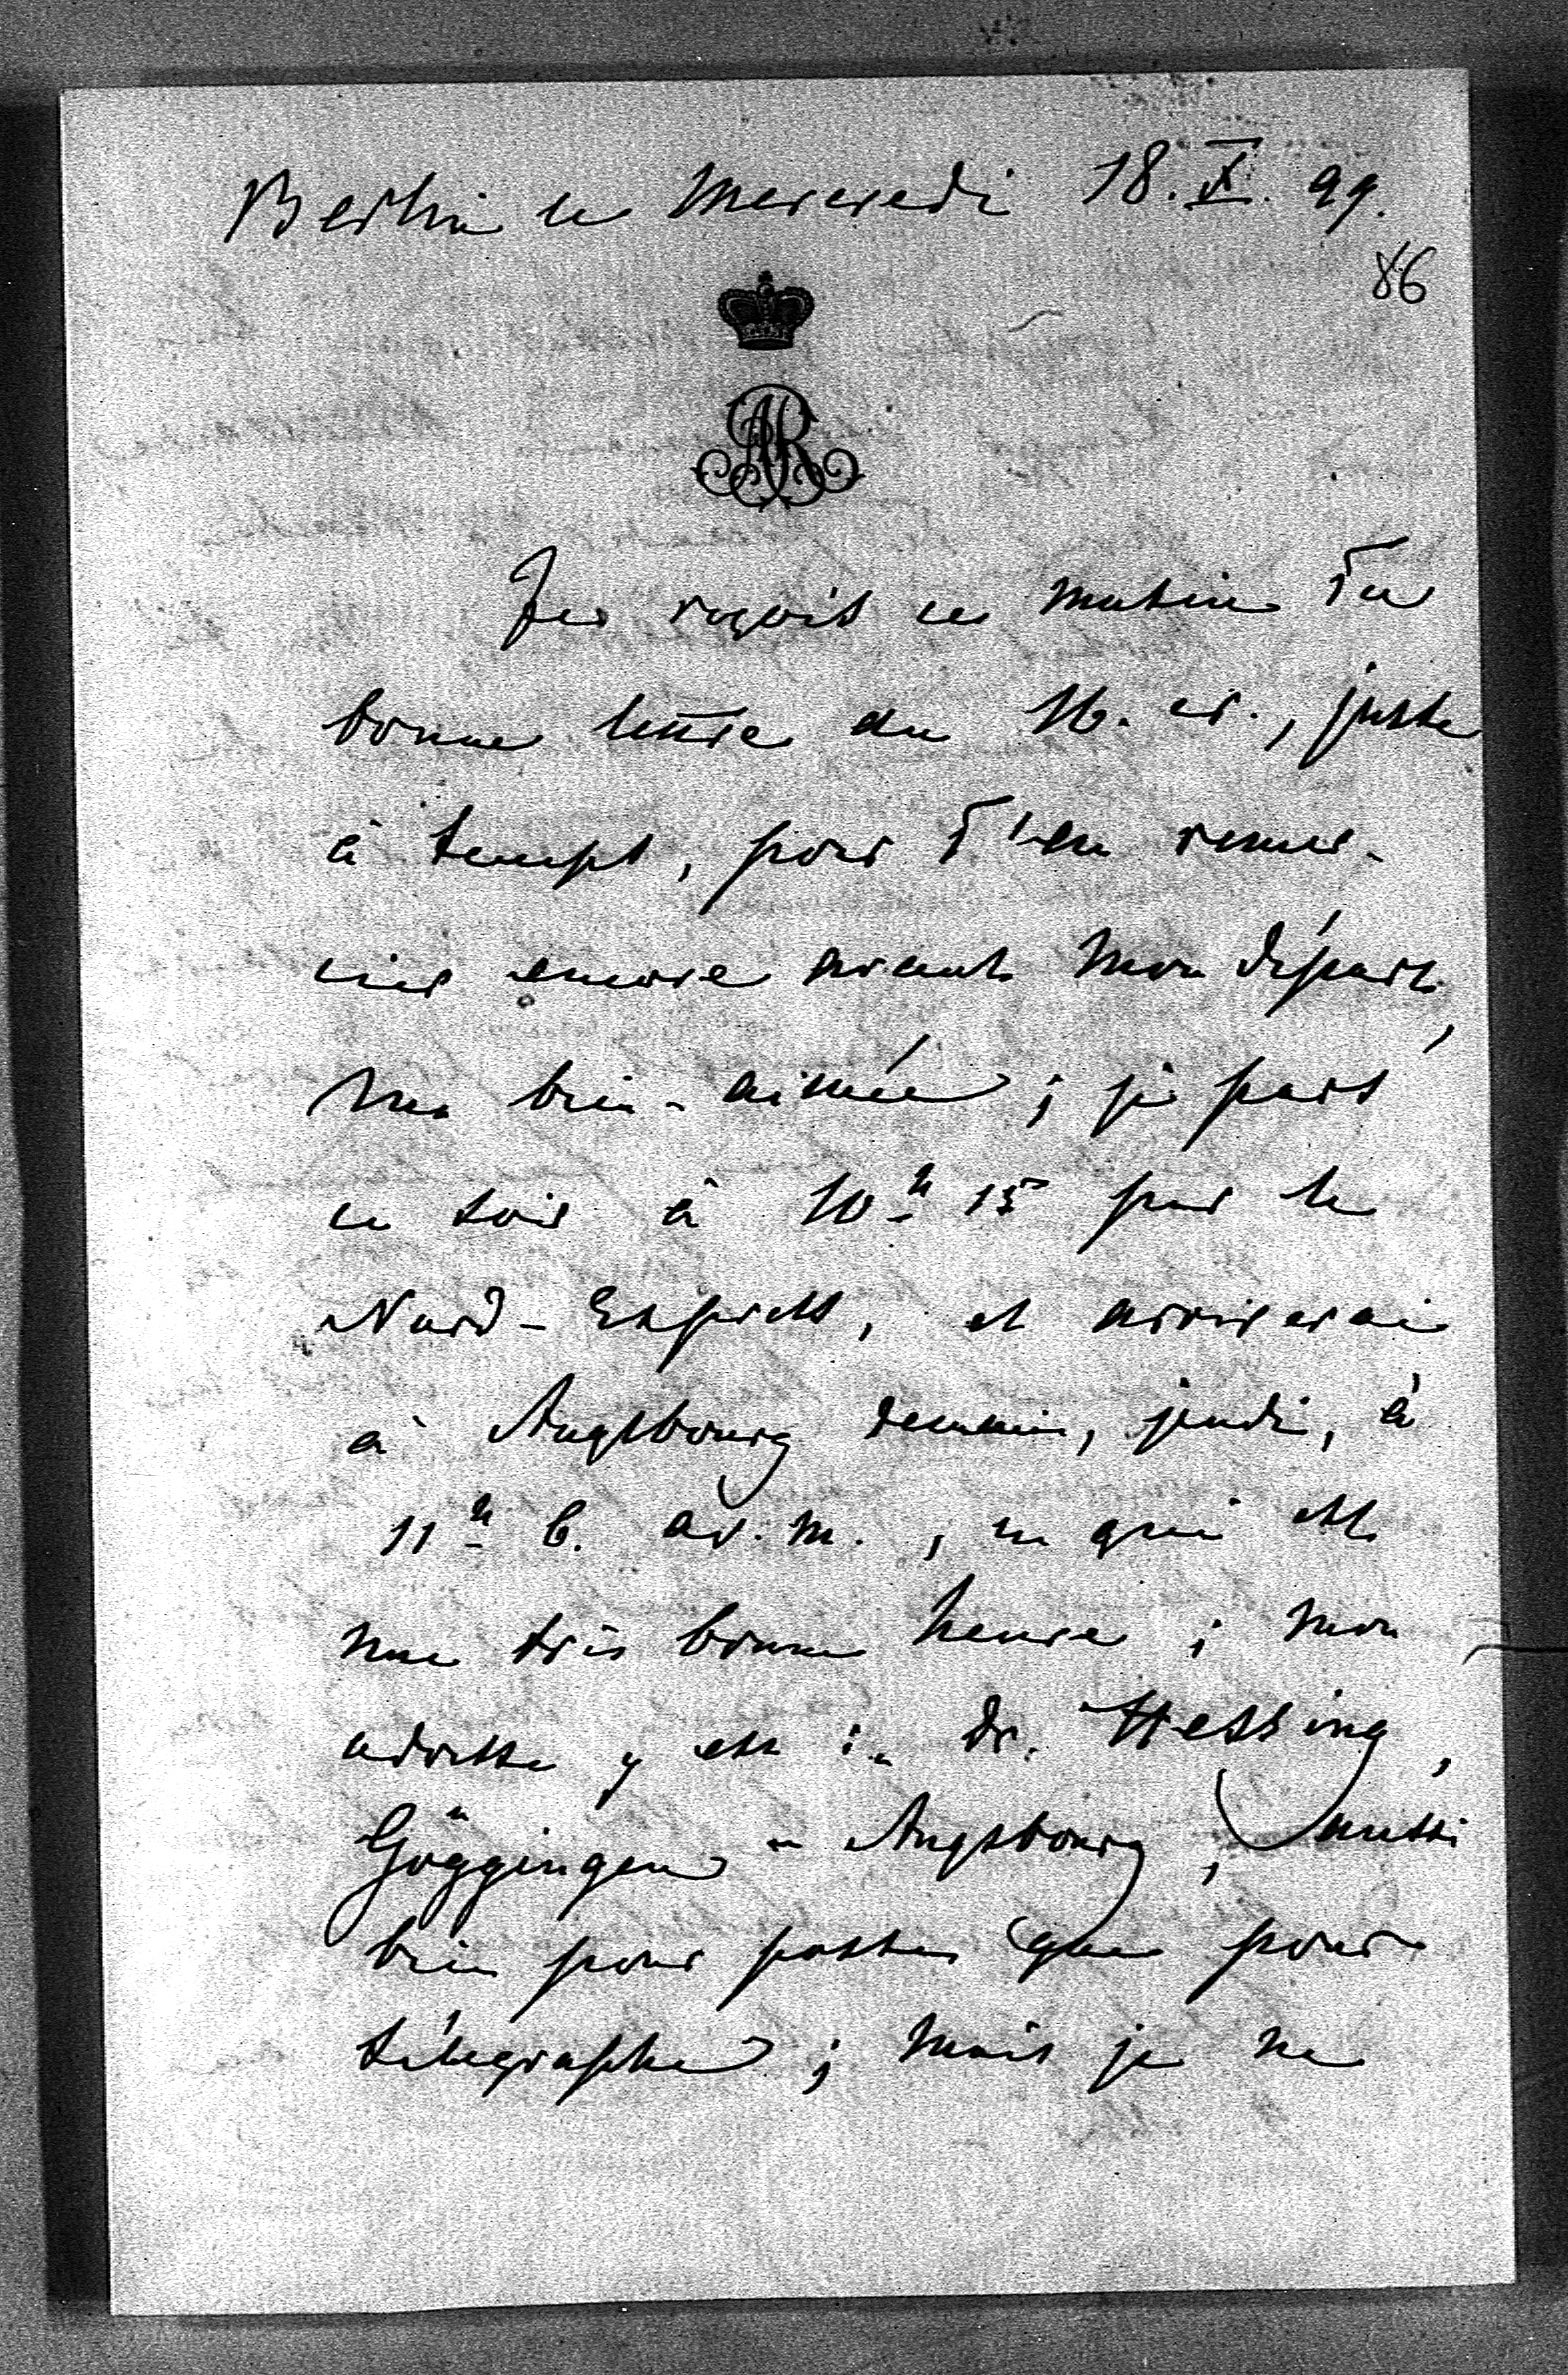 Berlin ce Mercredi 18. X. 99.
86
AR
Je reçois ce matin Ta
bonne lettre du 16. cr., juste
à temps, pour T'en remer-
cier encore avant mon départ,
ma bien-aimée; je pars
ce soir à 10h 15 par le
Nord-Express, et arriverai
à Augsbourg demain, jeudi, à
11h 6. av. m., ce qui est
une très bonne heure; mon
adresse y est: Dr. Hessing,
Göggingen - Augsbourg, aussi
bien pour postes que pour
télégraphe; mais je ne